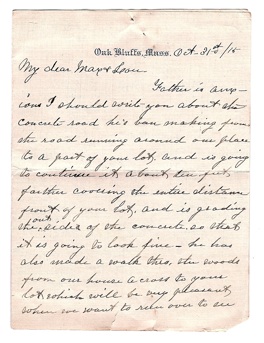 Oak Bluffs, Mass. Oct. 31st/15
My dear
Father is anx-
ious I should write you about the
concrete road he's been making from
the road running around our place
to a part of your lot, and is going
to continue it about ten feet
farther covering the entire distance
front of your lot, and is grading
the sides of the concrete, so that
it is going to look fine - he has
also made a walk thro. the woods
from our house across to your
lot, which will be very pleasant
when we want to run over to see